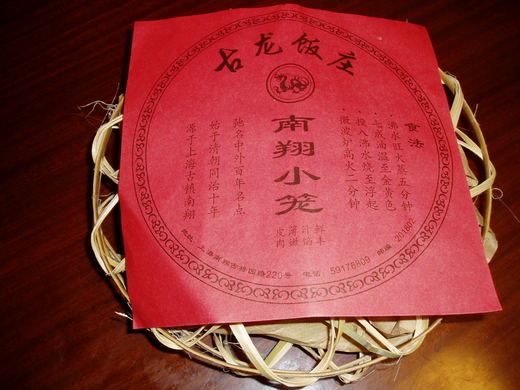 古龙饭庄
食法
·沸水旺火蒸五分钟
·七成油温至金黄色
·投入沸水烧至浮起
·微波炉高火二分钟
南翔小笼
皮薄汁鲜
肉嫩馅丰
驰名中外百年名点
始于清朝同治十年
源于上海古镇南翔
地址：上海南翔古猗园路220号 电话：59178809 邮编：201802